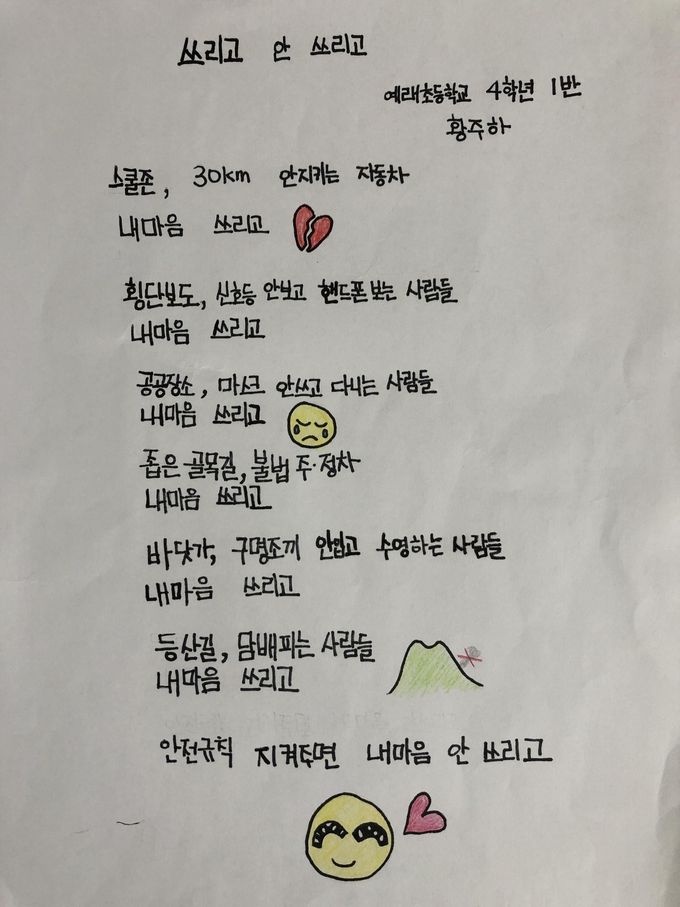 쓰리고 안 쓰리고
예래초등학교 4학년 1반
황주하
스쿨존, 30km 안지키는 자동차
내마음 쓰리고
횡단보도, 신호등 안보고 핸드폰보는 사람들
내마음 쓰리고
공공장소, 마스크 안쓰고 다니는 사람들
내마음 쓰리고
좁은 골목길, 불법 주·정차
내마음 쓰리고
바닷가, 구명조끼 안입고 수영하는 사람들
내마음 쓰리고
등산길, 담배피는 사람들
내마음 쓰리고
안전규칙 지켜주면 내마음 안 쓰리고